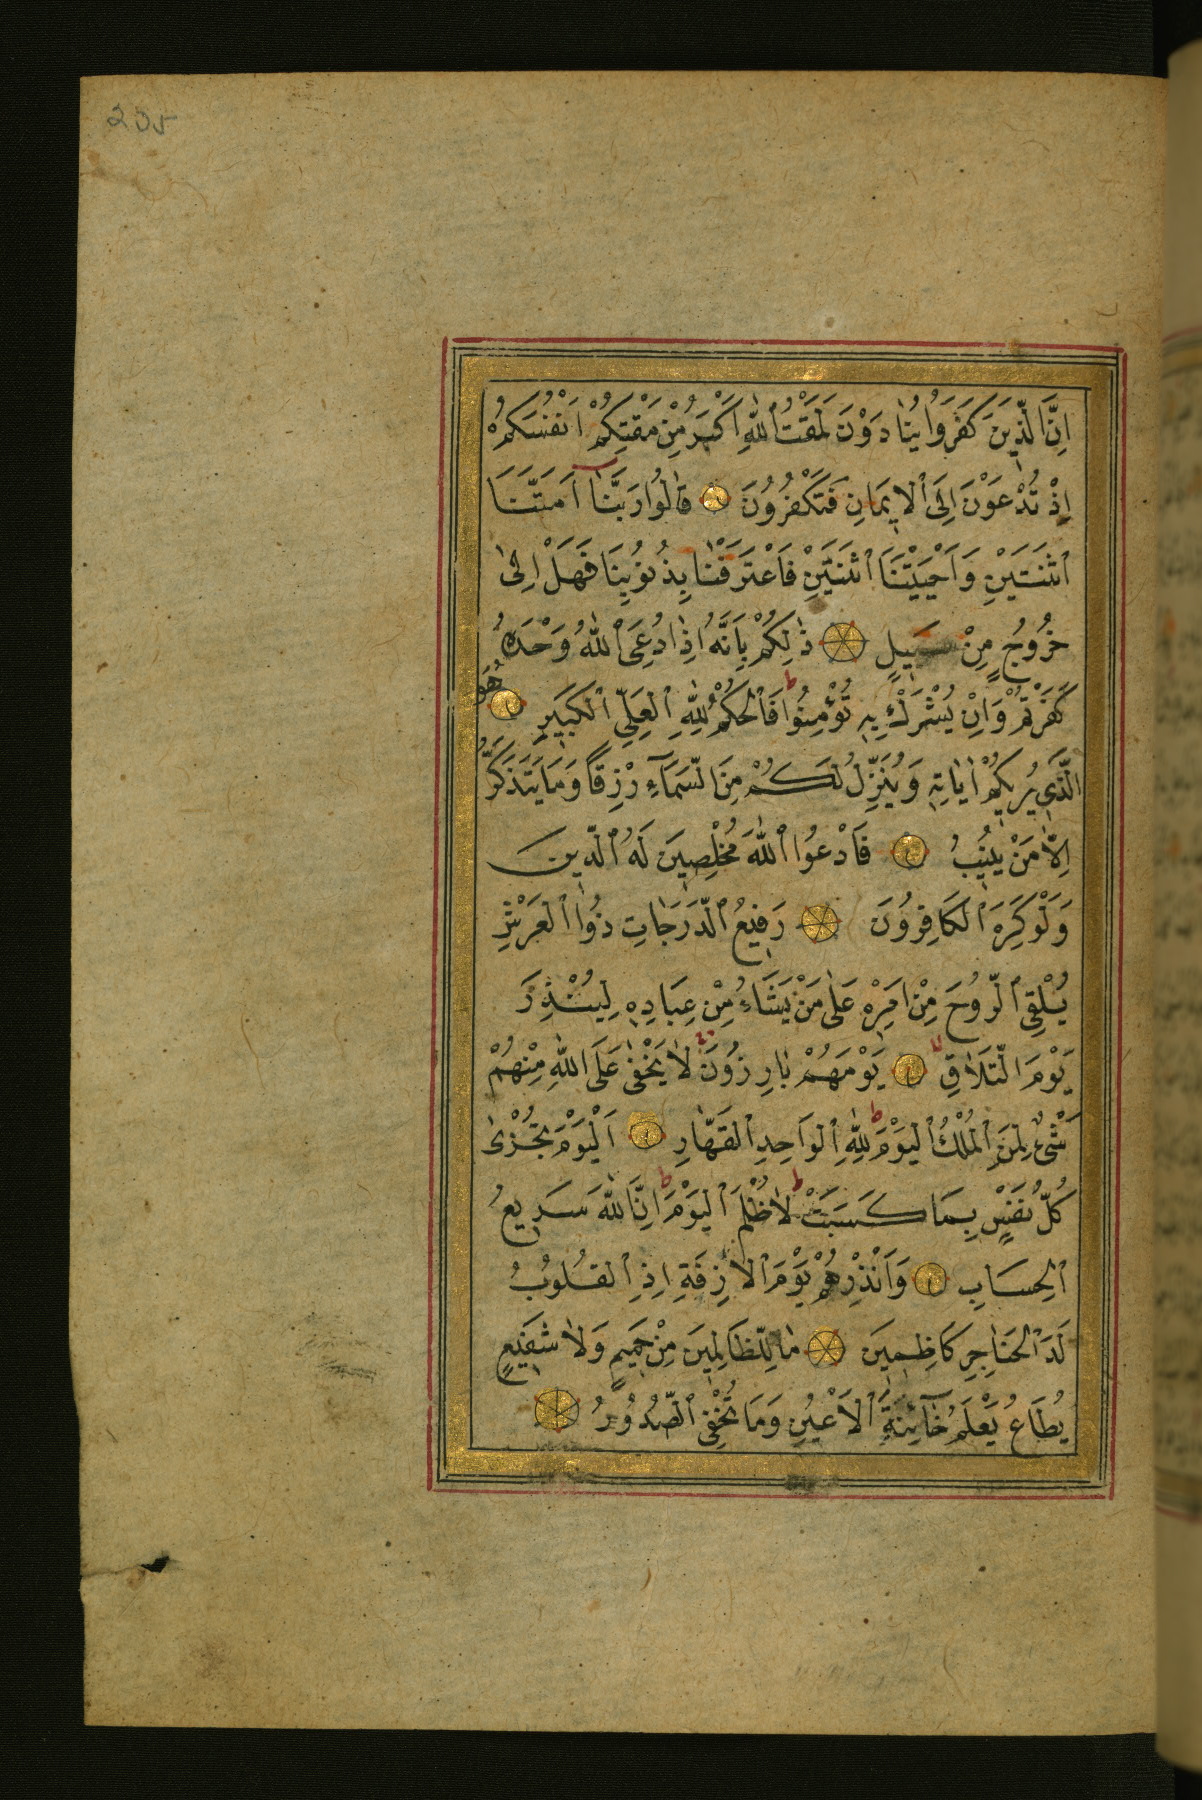 235
اِنَّ الَّذِينَ كَفَرُوا يُنَادَوْنَ لَمَقْتُ اللّٰهِ اَكْبَرُ مِنْ مَقْتِكُمْ اَنْفُسَكُمْ
اِذْ تُدْعَوْنَ اِلَى الْاِيمَانِ فَتَكْفُرُونَ قَالُوا رَبَّنَا اَمَتَّنَا
اثْنَتَيْنِ وَاَحْيَيْتَنَا اثْنَتَيْنِ فَاعْتَرَفْنَا بِذُنُوبِنَا فَهَلْ اِلٰى
خُرُوجٍ مِنْ سَبِيلٍ ذٰلِكُمْ بِاَنَّهُ اِذَا دُعِىَ اللّٰهُ وَحْدَهُ
كَفَرْتُمْ وَاِنْ يُشْرَكْ بِهِ تُؤْمِنُوا ط فَالْحُكْمُ لِلّٰهِ الْعَلِىِّ الْكَبِيرِ هُوَ
الَّذِى يُرِيكُمْ اٰيَاتِهِ وَيُنَزِّلُ لَكُمْ مِنَ السَّمَآءِ رِزْقًا وَمَا يَتَذَكَّرُ
اِلَّا مَنْ يُنِيبُ فَادْعُوا اللّٰهَ مُخْلِصِينَ لَهُ الدِّينَ
وَلَوْ كَرِهَ الْكَافِرُونَ رَفِيعُ الدَّرَجَاتِ ذُوا الْعَرْشِ
يُلْقِى الرُّوحَ مِنْ اَمْرِهِ عَلٰى مَنْ يَشَاءُ مِنْ عِبَادِهِ لِيُنْذِرَ
يَوْمَ التَّلَاقِ لا يَوْمَ هُمْ بَارِزُونَ لَا يَخْفٰى عَلَى اللّٰهِ مِنْهُمْ
شَىْءٌ لِمَنِ الْمُلْكُ الْيَوْمَ ط لِلّٰهِ الْوَاحِدِ الْقَهَّارِ اَلْيَوْمَ تُجْزٰى
كُلُّ نَفْسٍ بِمَا كَسَبَتْ ط لَا ظُلْمَ الْيَوْمَ ط اِنَّ اللّٰهَ سَرِيعُ
الْحِسَابِ وَاَنْذِرْهُمْ يَوْمَ الْاٰزِفَةِ اِذِ الْقُلُوبُ
لَدَ الْحَنَاجِرِ كَاظِمِينَ مَا لِلظَّالِمِينَ مِنْ حَمِيمٍ وَلَا شَفِيعٍ
يُطَاعُ يَعْلَمُ خَآئِنَةَ الْاَعْيُنِ وَمَا تُخْفِى الصُّدُورُ